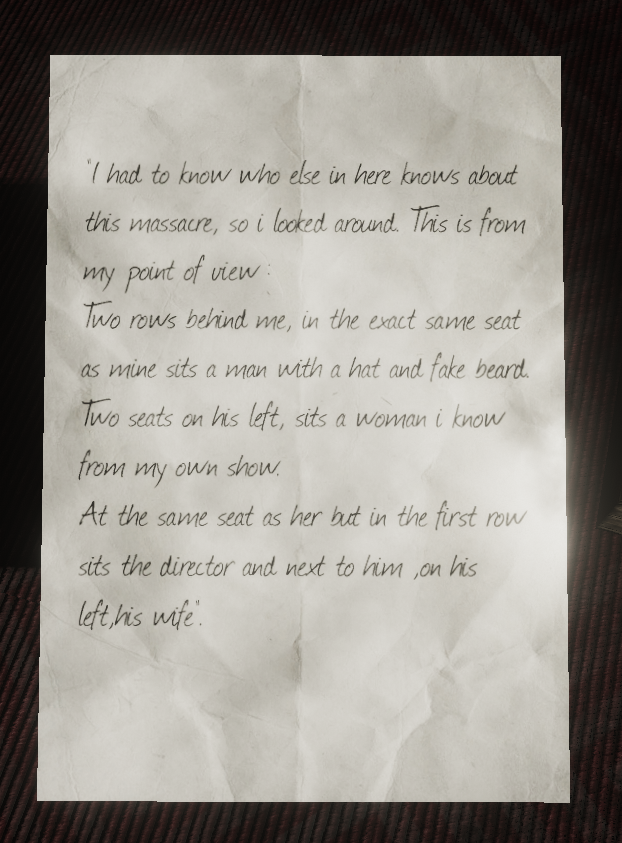 "I had to know who else in here knows about
this massacre, so i looked around. This is from
my point of view :
Two rows behind me, in the exact same seat
as mine sits a man with a hat and fake beard.
Two seats on his left, sits a woman i know
from my own show.
At the same seat as her but in the first row
sits the director and next to him ,on his
left,his wife".